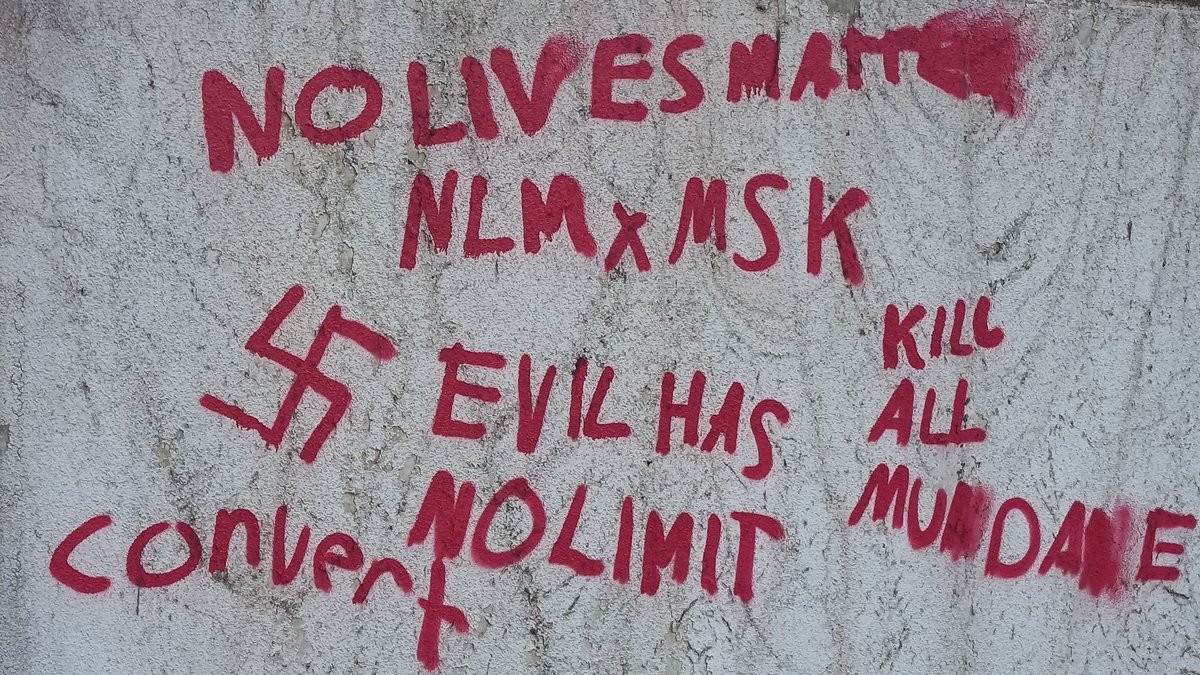 NO LIVES MATTER
NLM x MSK
EVIL HAS
NO LIMIT
KILL
ALL
MUNDANE
convert